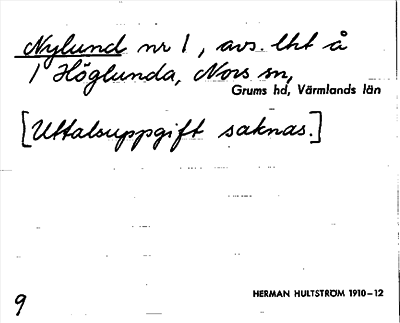 Nylund nr 1, avs. lht å
1 Höglunda, Nors sn,
Grums hd, Värmlands län
[Uttalsuppgift saknas.]
HERMAN HULTSTRÖM 1910–12
9